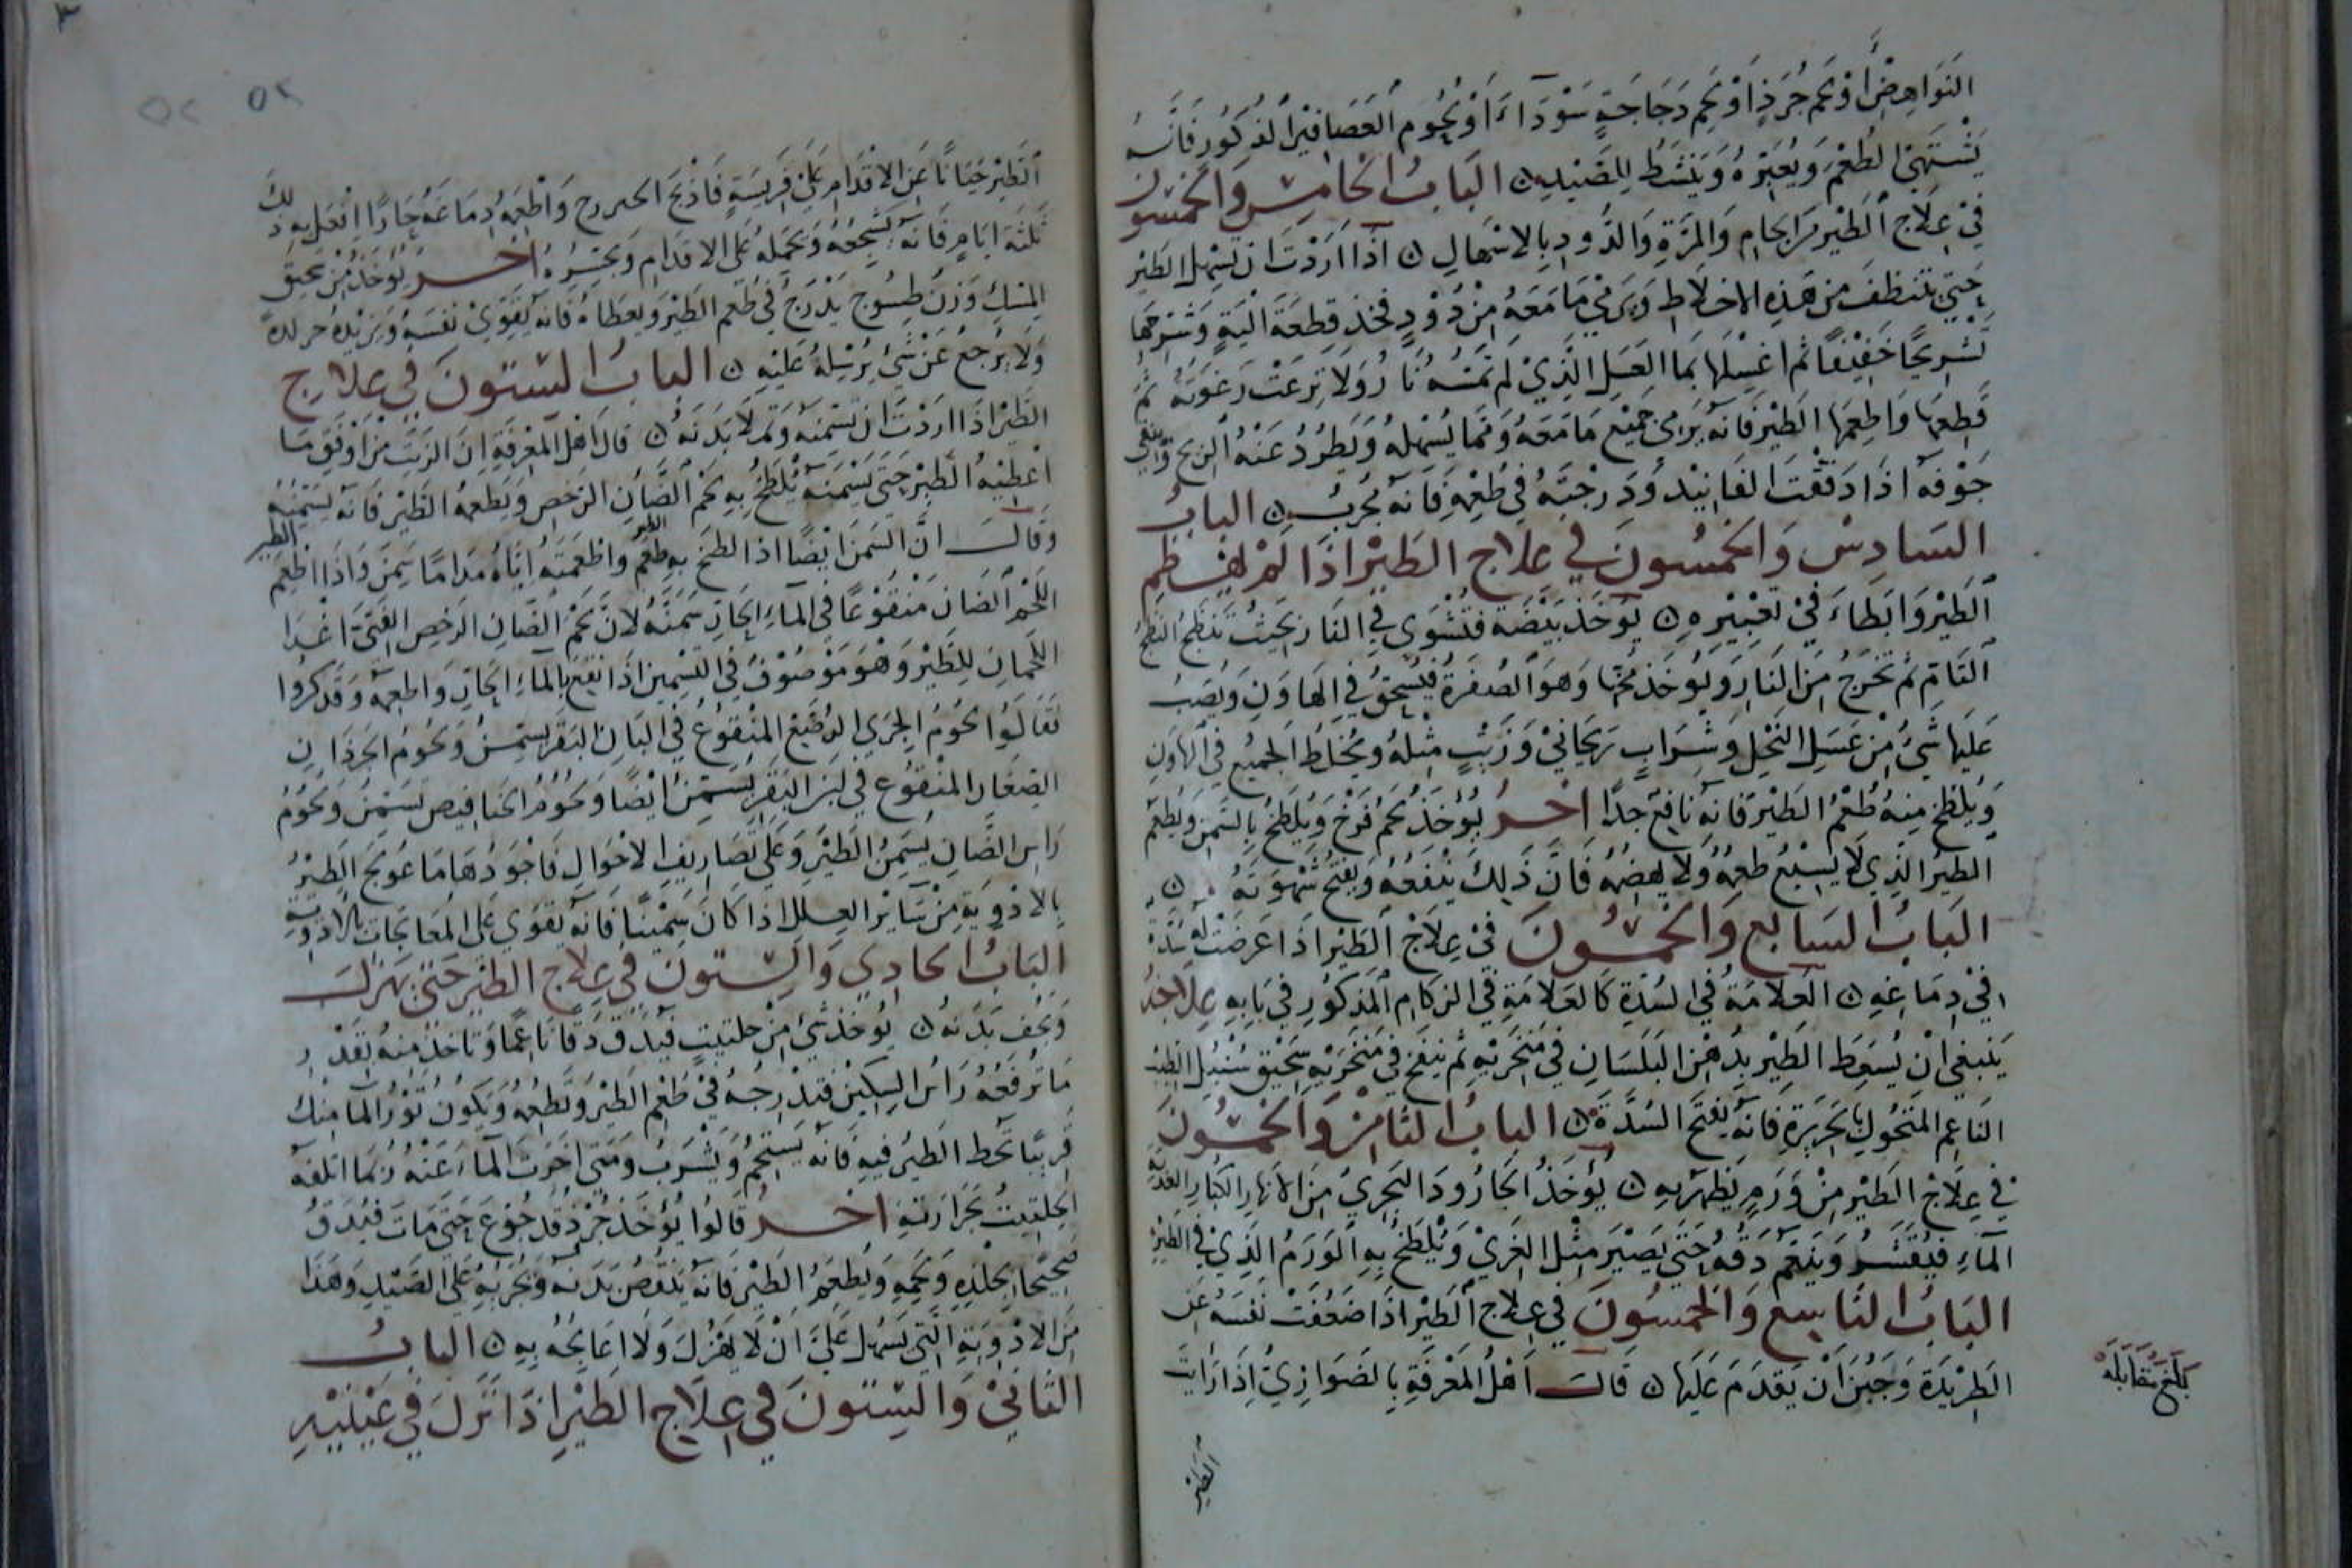 النواهض أو لحم جرذ أو لحم دجاجة سوداء أو لحوم العصافير الذكور فانه
يشتهي الطعم ويعبره وينشط للصيد ن الباب الخامس والخمسون
في علاج الطير من الجام والمرة والدود بالاسهال ن اذا اردت ان تسهل الطير
حتى تنظف من هذه الاخلاط ويرمي ما معه من دود فخذ قطعة الية وشرحها
تشريحا خفيفا ثم اغسلها بما العسل الذي لم تمسه نار ولا نزعت رغوته ثم
قطعها واطعمها الطير فانه يرمي جميع ما معه ومما يسهله ويطرد عنه الريح وينقي
جوفه اذا دققت الفانيد ودرجته في طعمه فانه مجرب ن الباب
السادس والخمسون في علاج الطير اذا لم يهضم
الطير وابطاء في تعبيره ن تؤخذ بيضة فتشوى في النار بحيث تنضج النضج
التام ثم تخرج من النار ويؤخذ محها وهو الصفرة فيسحق في الهاون ويصب
عليها شئ من عسل النحل وشراب ريحاني وزيت مثله ويخلط الجميع في الهاون
ويلطخ منه طعم الطير فانه نافع جدا اخر يؤخذ لحم فرخ ويلطخ بالسمن ويطعم
الطير الذي لا يسيغ طعمه ولا يهضمه فان ذلك ينفعه ويفتح شهوته ن
الباب السابع والخمسون في علاج الطير اذا عرضت له سدة
في دماغه ن العلامة في السدة كالعلامة في الزكام المذكور في بابه علاجه
ينبغي ان يسعط الطير بدهن البلسان في منخريه ثم ينفخ في منخريه سحيق سنبل الطيب
الناعم المنخول بالحريرة فانه يفتح السدة ن الباب الثامن والخمسون
في علاج الطير من ورم يظهر به ن يؤخذ الجارود البحري من الانهار الكبار العذبة
الماء فيقشر وينعم دقه حتى يصير مثل الغري ويلطخ به الورم الذي في الطير
الباب التاسع والخمسون في علاج الطير اذا ضعفت نفسه عن
الطريدة وجبن ان يقدم عليها ن قالت اهل المعرفة بالضوازي اذا رايت
الطير
بلغ مقابلة
٥٢
الطير جبانا عن الاقدام على فريسة فاذبح واطعمه دماغه حارا افعل به ذلك
ثلثة ايام فانه يشجعه ويحمله على الاقدام ويجسره اخر يؤخذ من سحيق
المسك وزن طسوج يدرج في طعم الطير ويعطاه فانه يقوي نفسه ويزيد
ولا يرجع عن شئ يرسله عليه ن الباب الستون في علاج
الطير اذا اردت ان تسمنه وتملا بدنه ن قال اهل المعرفة ان الزيت من اوفق ما
اعطيه الطير حتى يسمنه يلطخ به لحم الضان الرخص ويطعمه الطير فانه يسمنه
وقالت ان السمن ايضا اذا لطخ به طعم الطير واطعمته اياه مداما سمن واذا اطعم الطير
اللحم الضان منقوعا في الماء الحار سمنه لان لحم الضان الرخص الفتي اغدا
اللحمان للطير وهو موصوف في التسمين اذا نقع بالماء الحار واطعمه وقد كروا
فقالوا لحوم الجري الرضيع المنقوع في البان البقر يسمن ولحوم الجرذان
الصغار المنقوع في لبن البقر يسمن ايضا ولحوم الخنافيص تسمن ولحوم
راس الضان يسمن الطير وعلى تصاريف الاحوال فاجودها ما عولج الطير
بالادوية من سائر العلل اذا كان سمينا فانه يقوى على المعالجات بالادوية
الباب الحادي والستون في علاج الطير حتى يهزل
ويخف بدنه ن يؤخذ شئ من حلتيت فيدق دقا ناعما وتاخذ منه بقدر
ما ترفعه راس السكين فتدرجه في طعم الطير وتطعمه ويكون تور الما منك
قريبا تحط الطير فيه فانه يستحم ويشرب ومتى اخرت الماء عنه ربما اتلفه
الحلتيت بحرارته اخر قالوا يؤخذ جرذ قد جوع حتى مات فيدق
صحيحا بجلده ولحمه ويطعم الطير فانه ينقص بدنه ويجريه على الصيد وهذا
من الادوية التي يسهل علي ان لا يهزل ولا اعالجه به ن الباب
الثاني والستون في علاج الطير اذا نزل في عينيه